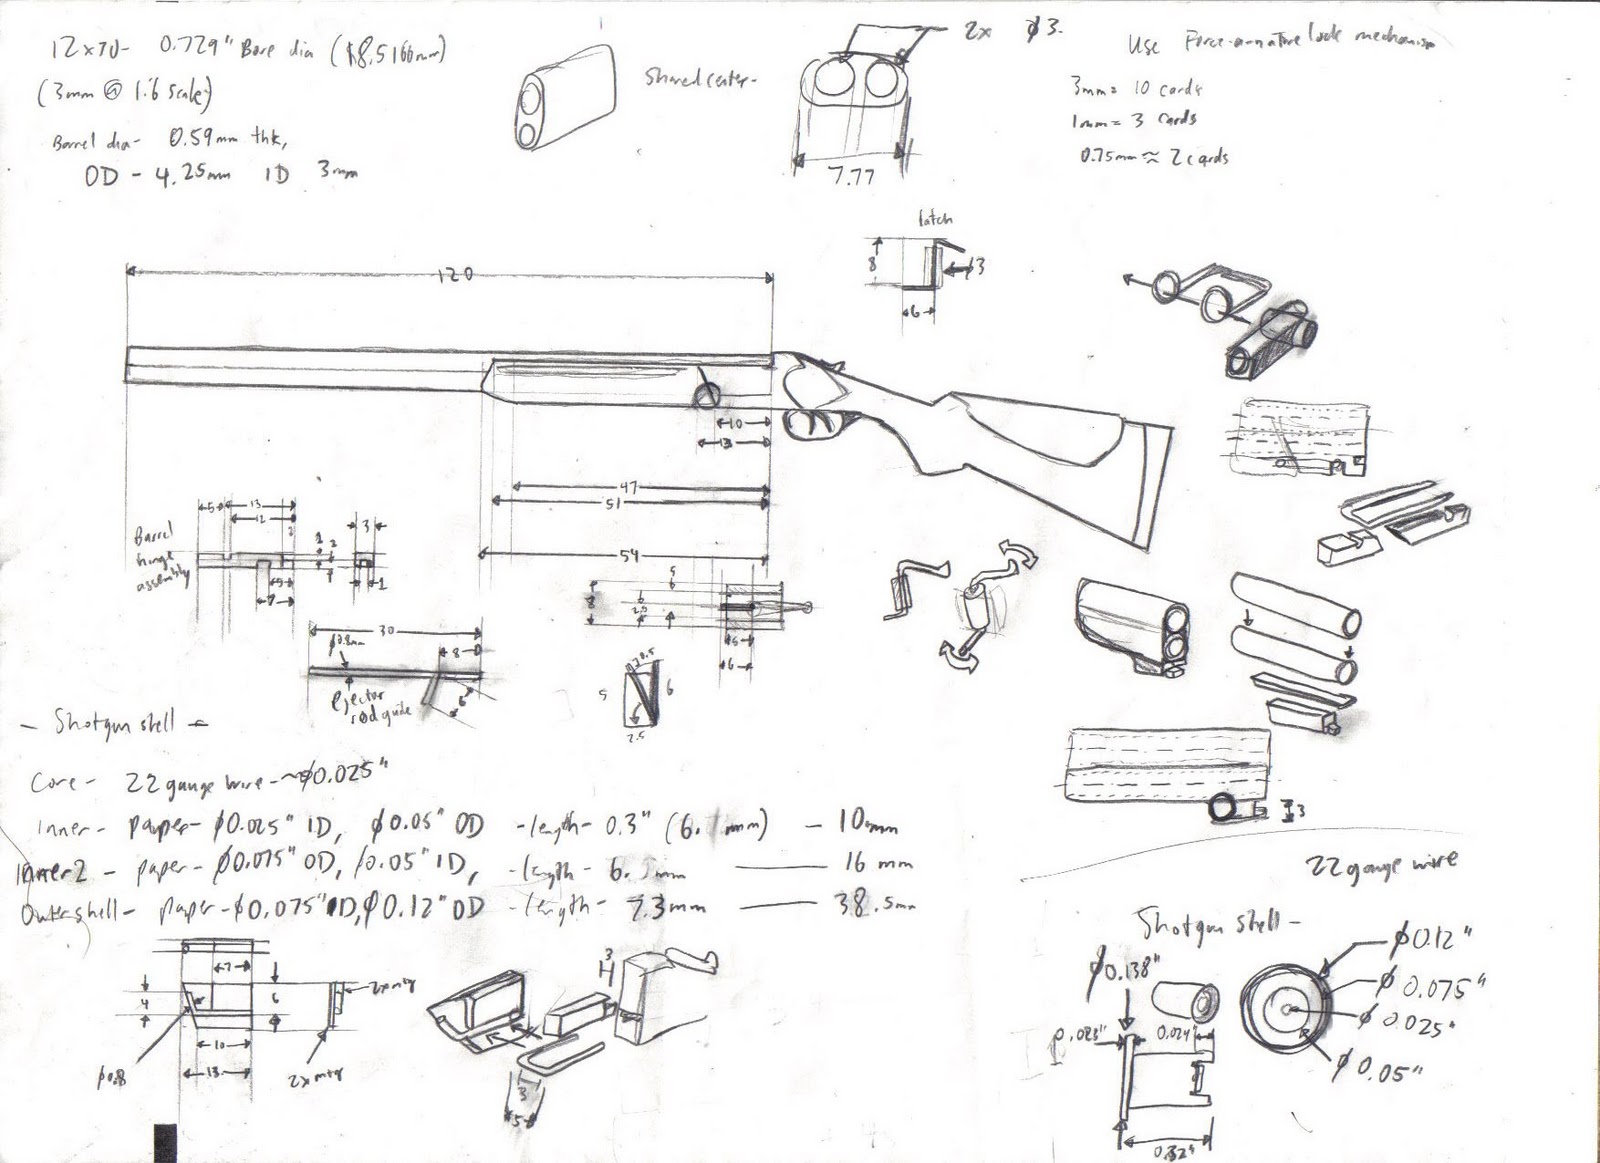 12x70- 0.729" Bore dia (18.5166mm)
(3mm @ 1:6 scale)
Barrel dia- 0.59mm thk,
OD - 4.25mm ID 3mm
Shared center-
2x ϕ3.
7.77
Use Force-a-nature lock mechanism
3mm = 10 cards
1mm = 3 cards
0.75mm ≈ 2 cards
latch
8
ϕ3
6
120
10
13
47
51
54
Barrel
hinge
assembly
5
13
12
2
1
2
3
5
7
1
30
ϕ0.8mm
8
6
Ejector
rod guide
5
8
2.5
5
6
5
6
2.5
- Shotgun shell -
Core- 22 gauge wire-~ϕ0.025"
Inner- paper- ϕ0.025" ID, ϕ0.05" OD -length- 0.3" (6.1mm) - 10mm
Inner2 - paper- ϕ0.075" OD, 0.05" ID, -length- 6. mm — 16 mm
Outershell- paper-ϕ0.075" ID, ϕ0.12" OD -length- 7.3mm — 38.5mm
7
4
6
10
13
ϕ0.8
2x mtg
2x mtg
3
3
5
3
22 gauge wire
Shotgun shell-
ϕ0.138"
0.023"
0.024"
0.32"
ϕ0.12"
ϕ0.075"
ϕ0.025"
ϕ0.05"